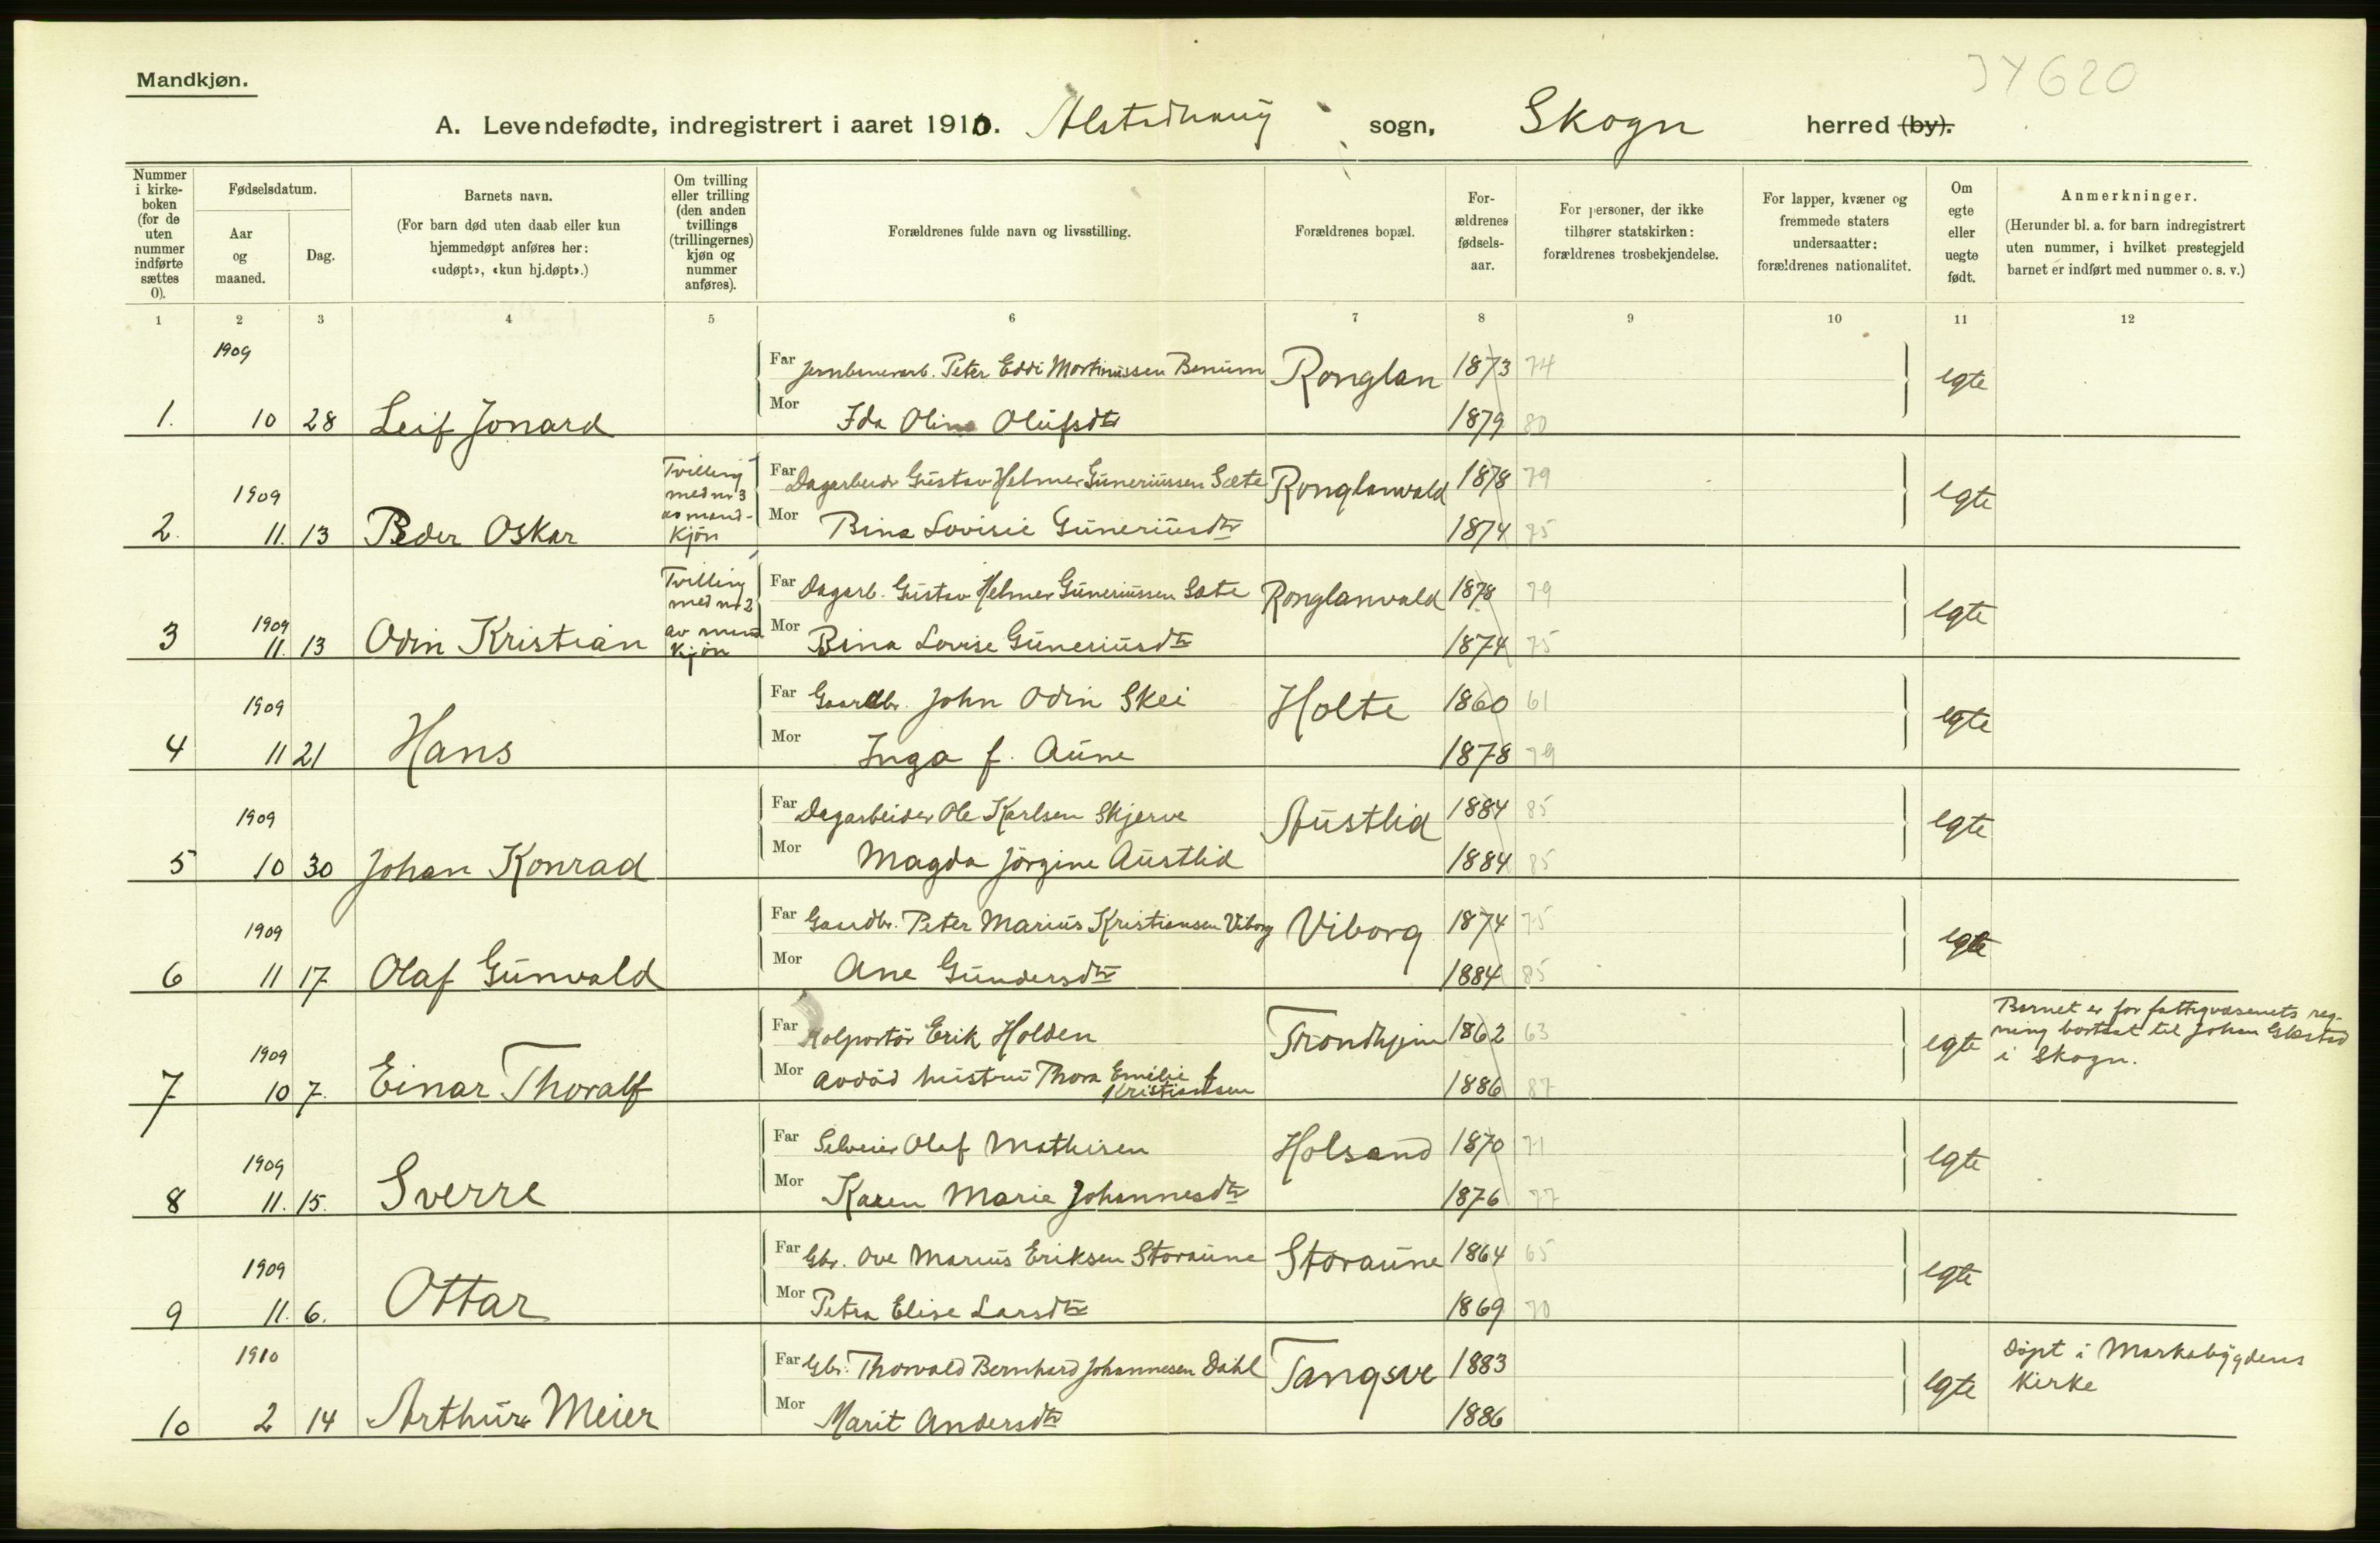 Mandkjøn.
JY 620
A. Levendefødte, indregistrert i aaret 1910. Alstadhaug sogn, Skogn herred (by).
Nummer i kirke- boken (for de uten nummer indførte sættes 0).
Fødselsdatum.
Aar og maaned.
Dag.
Barnets navn.
(For barn død uten daab eller kun hjemmedøpt anføres her: «udøpt», «kun hj.døpt».)
Om tvilling eller trilling (den anden tvillings (trillingernes) kjøn og nummer anføres).
Forældrenes fulde navn og livsstilling.
Forældrenes bopæl.
For- ældrenes fødsels- aar.
For personer, der ikke tilhører statskirken: forældrenes trosbekjendelse.
For lapper, kvæner og fremmede staters undersaatter: forældrenes nationalitet.
Om egte eller uegte født.
Anmerkninger.
(Herunder bl. a. for barn indregistrert uten nummer, i hvilket prestegjeld barnet er indført med nummer o. s. v.)
1 2 3 4 5 6 7 8 9 10 11 12
1909
Far Jernbanearb. Peter Eddi Martinussen Benum Ronglan 1873 74 egte
1. 10 28 Leif Jonard Mor Ida Olina Olufsdtr 1879 80
1909 Tvilling med nr 3 av mand- kjön
Far Dagarbeider Gustav Helmer Guneriussen Sæte Ronglanvald 1878 79 egte
2. 11. 13 Peder Oskar Mor Bina Lovisie Guneriusdtr 1874 75
1909 Tvilling med nr 2 av mand kjön
Far Dagarb. Gustav Helmer Guneriussen Sæte Ronglanvald 1878 79 egte
3 11. 13 Odin Kristian Mor Bina Lovise Guneriusdtr 1874 75
1909
Far Gaardbr. John Odin Skei Holte 1860 61 egte
4 11 21 Hans Mor Inga f. Aune 1878 79
1909
Far Dagarbeider Ole Karlsen Skjerve Austlid 1884 85 egte
5 10 30 Johan Konrad Mor Magda Jörgine Austlid 1884 85
1909
Far Gaardbr. Peter Marius Kristiansen Viborg Viborg 1874 75 egte
6 11 17 Olaf Gunvald Mor Ane Gundersdtr 1884 85
1909
Far Kolportör Erik Holden Trondhjem 1862 63 egte
Barnet er for fattigvæsenets reg-
ning bortsat til Johan
i Skogn.
7 10 7. Einar Thoralf Mor Avdöd hustru Thora Emilie f. Kristiansen 1886 87
1909
Far Selveier Olaf Mathisen Holsand 1870 71 egte
8 11. 15. Sverre Mor Karen Marie Johannesdtr 1876 77
1909
Far Gbr. Ove Marius Eriksen Storaune Storaune 1864 65 egte
9 11. 6. Ottar Mor Petra Elise Larsdtr 1869 70
1910
Far Gbr. Thorvald Bernhard Johannesen Dahl Tangsve 1883 egte
Döpt i Markabygdens
kirke
10 2 14 Arthur Meier Mor Marit Andersdtr 1886